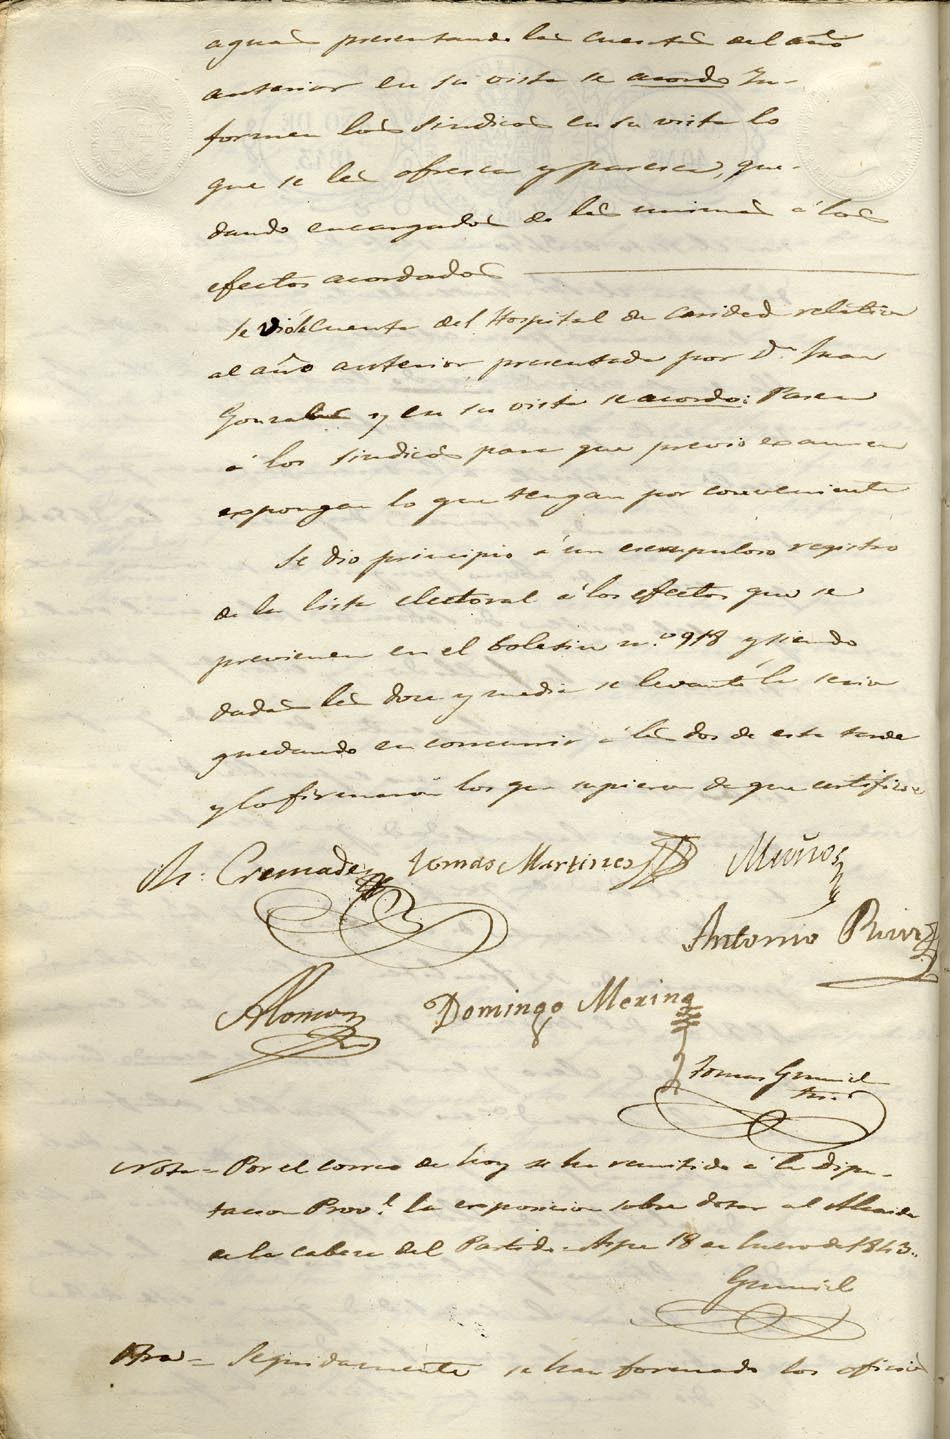 aguas presentando las cuentas del año
anterior en su vista se acordo In-
formen los Sindicos en su vista lo
que se les ofresca y paresca, que-
dando encargados de las mismas á los
efectos acordados
Se dió cuenta del Hospital de caridad relativa
al año anterior presentada por Dn. Juan
Gonzalez y en su vista se acordo: Pasen
á los sindicos para que previo examen
espongan lo que tengan por conveniente
Se dio principio á un escrupuloso registro
de la lista electoral á los efectos que se
previenen en el boletin n.º 918 y siendo
dadas las doce y media se levantó la sesion
quedando en concurrir á las dos de esta tarde
y lo firmaron los que supieron de que certifico
Cremades Tomas Martines Muños
Antonio
Alonso Domingo Merina
Tomas
Nota = Por el correo de hoy se ha remitido á la Dipu-
tacion Prov.l la exposicion sobre dotar al Alcaide
de la cabeza del Partido. Aspe 18 de Enero de 1843.

Otra = Seguidamente se han formado los oficios